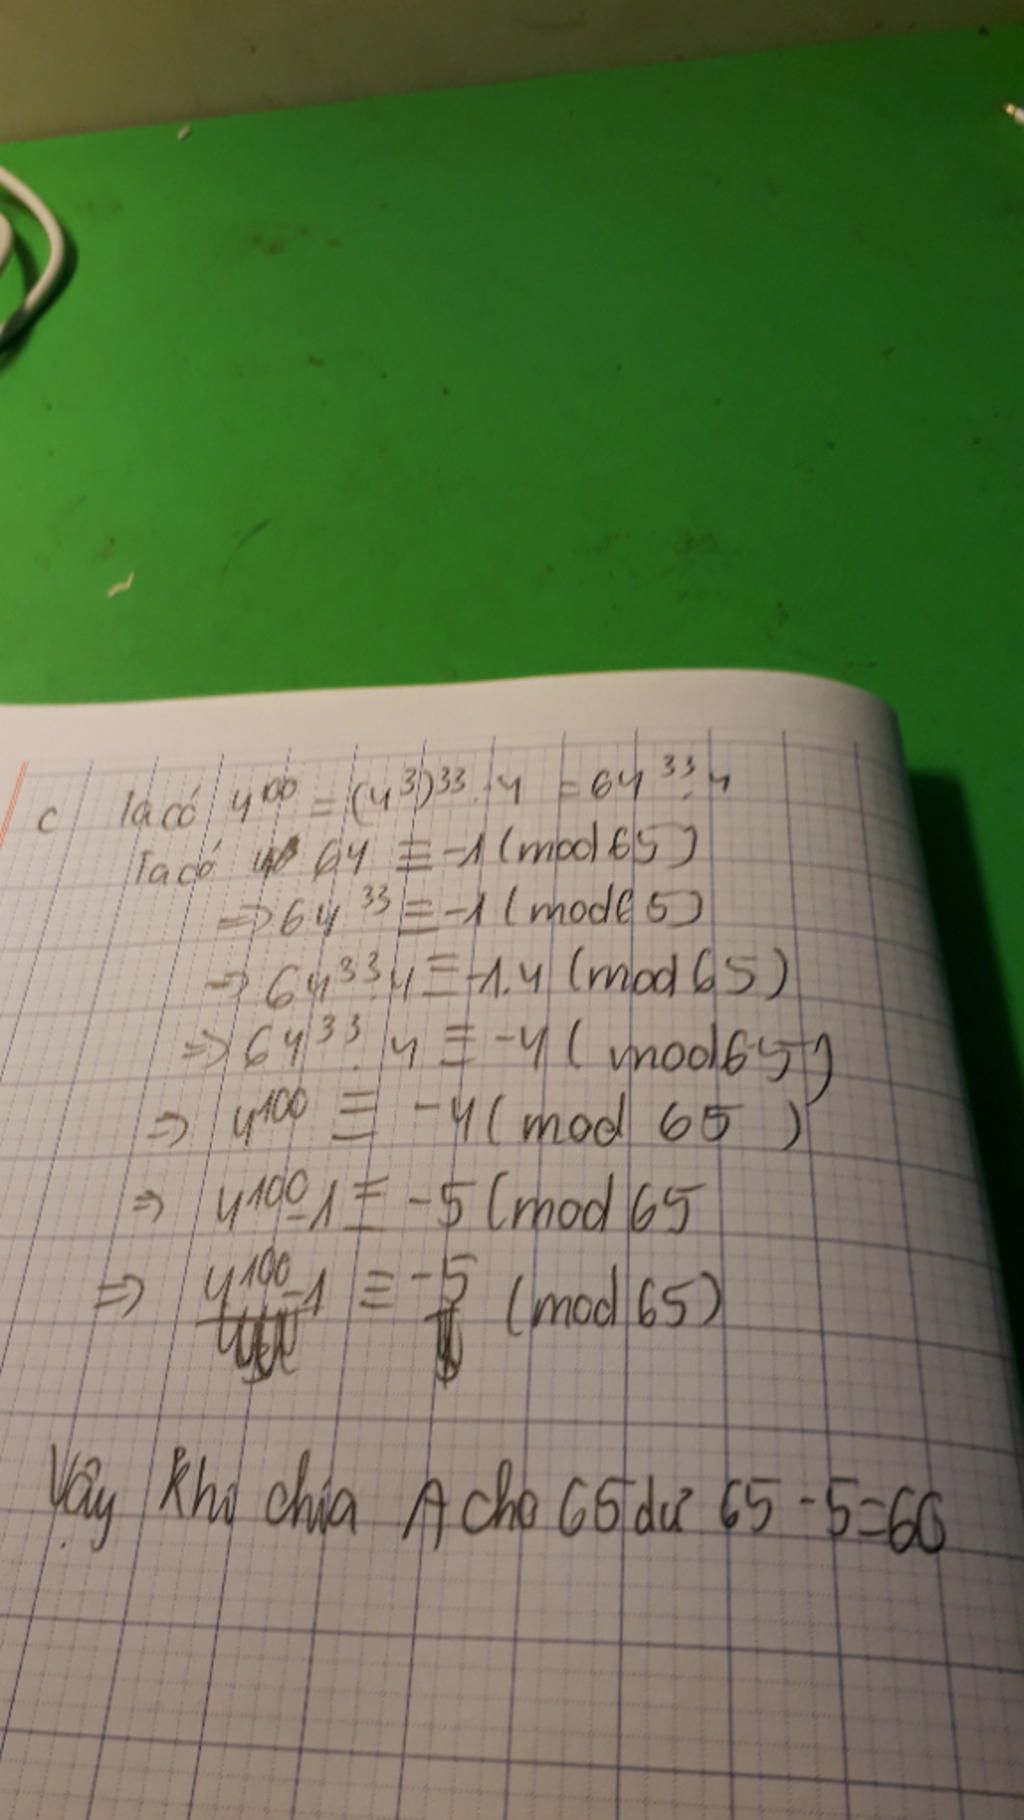 c Ta có 4¹⁰⁰ = (4³)³³ . 4 = 64³³ . 4
Ta có 64 ≡ -1 (mod 65)
=> 64³³ ≡ -1 (mod 65)
=> 64³³ . 4 ≡ -1.4 (mod 65)
=> 64³³ . 4 ≡ -4 (mod 65)
=> 4¹⁰⁰ ≡ -4 (mod 65)
=> 4¹⁰⁰ - 1 ≡ -5 (mod 65
=> 4¹⁰⁰ - 1 ≡ -5 (mod 65)
Vậy khi chia A cho 65 dư 65 - 5 = 60